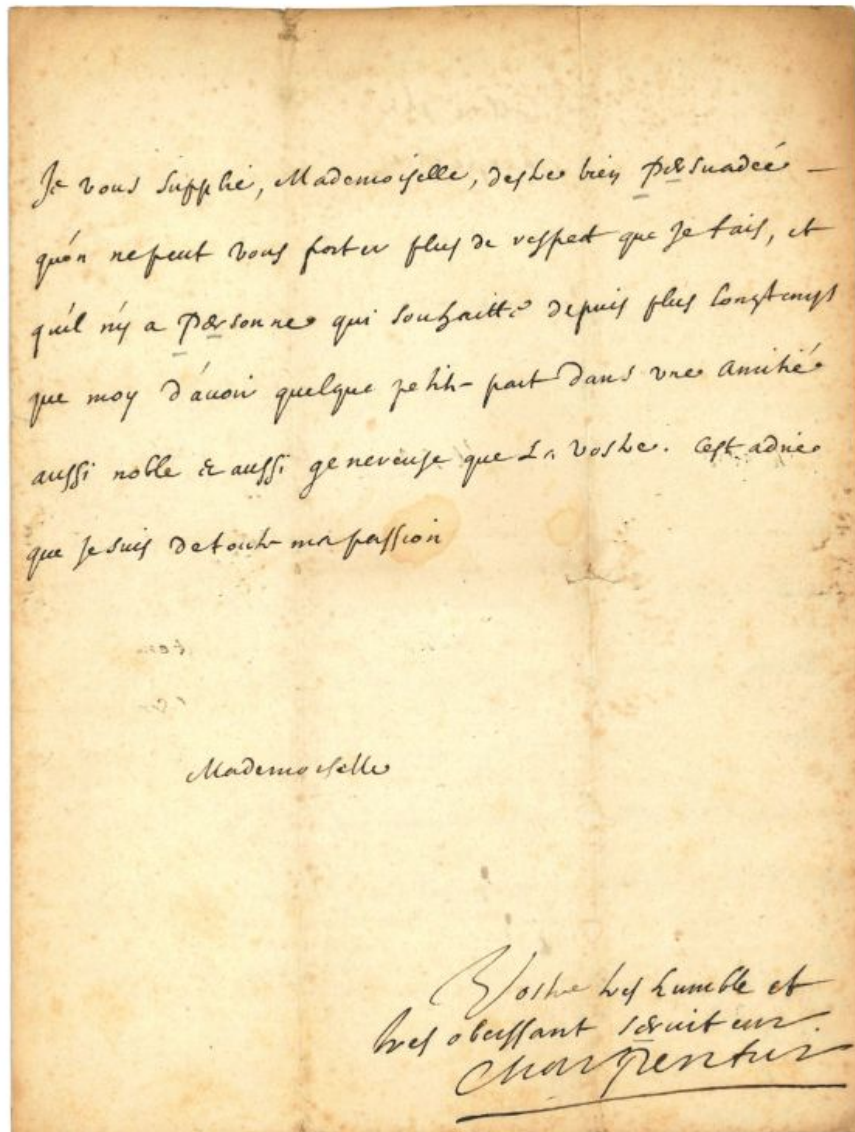 Je vous supplie, Mademoiselle, destre bien persuadée
qu'on ne peut vous porter plus de respect que je fais, et
qu'il n'y a personne qui souhaitte depuis plus longtemps
que moy d'avoir quelque petite part dans vne amitié
aussi noble & aussi genereuse que la vostre. cest adire
que je suis de toute ma passion
Mademoiselle
Vostre tres humble et
tres obeissant seruiteur
Charpentier